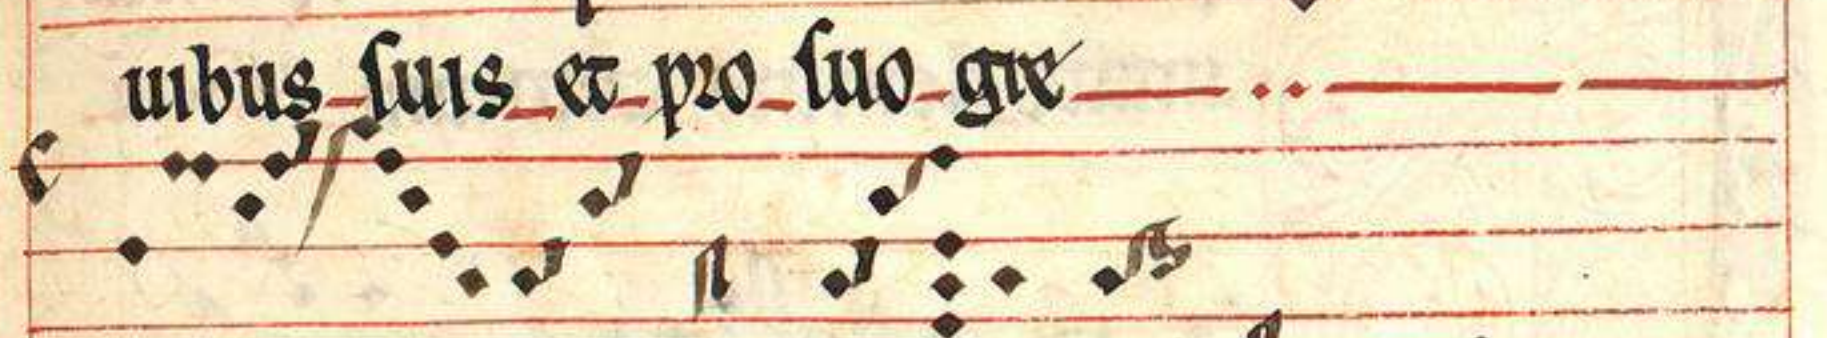 uibus suis et pro suo gre